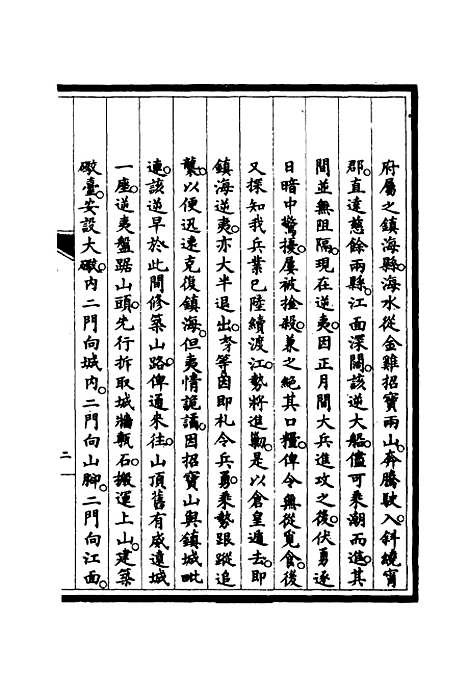 府屬之鎮海縣海水從金雞招寶兩山奔騰駛入斜繞甯
郡直達慈餘兩縣江面深闊該逆大船儘可乘潮而進其
間並無阻隔現在逆夷因正月間大兵進攻之後伏勇逐
日暗中驚擾屢被搶殺兼之絕其口糧俾令無從覓食後
又探知我兵業已陸續渡江勢將進勦是以倉皇遁去即
鎮海逆夷亦大半退出等因即札令兵勇乘勢跟蹤追
襲以便迅速克復鎮海但夷情詭譎因招寶山與鎮城毗
連該逆早於此間修築山路俾通來往山頂舊有威遠城
一座逆夷盤踞山頭先行拆取城牆甎石搬運上山建築
礮臺安設大礮內二門向城內二門向山腳二門向江面
二